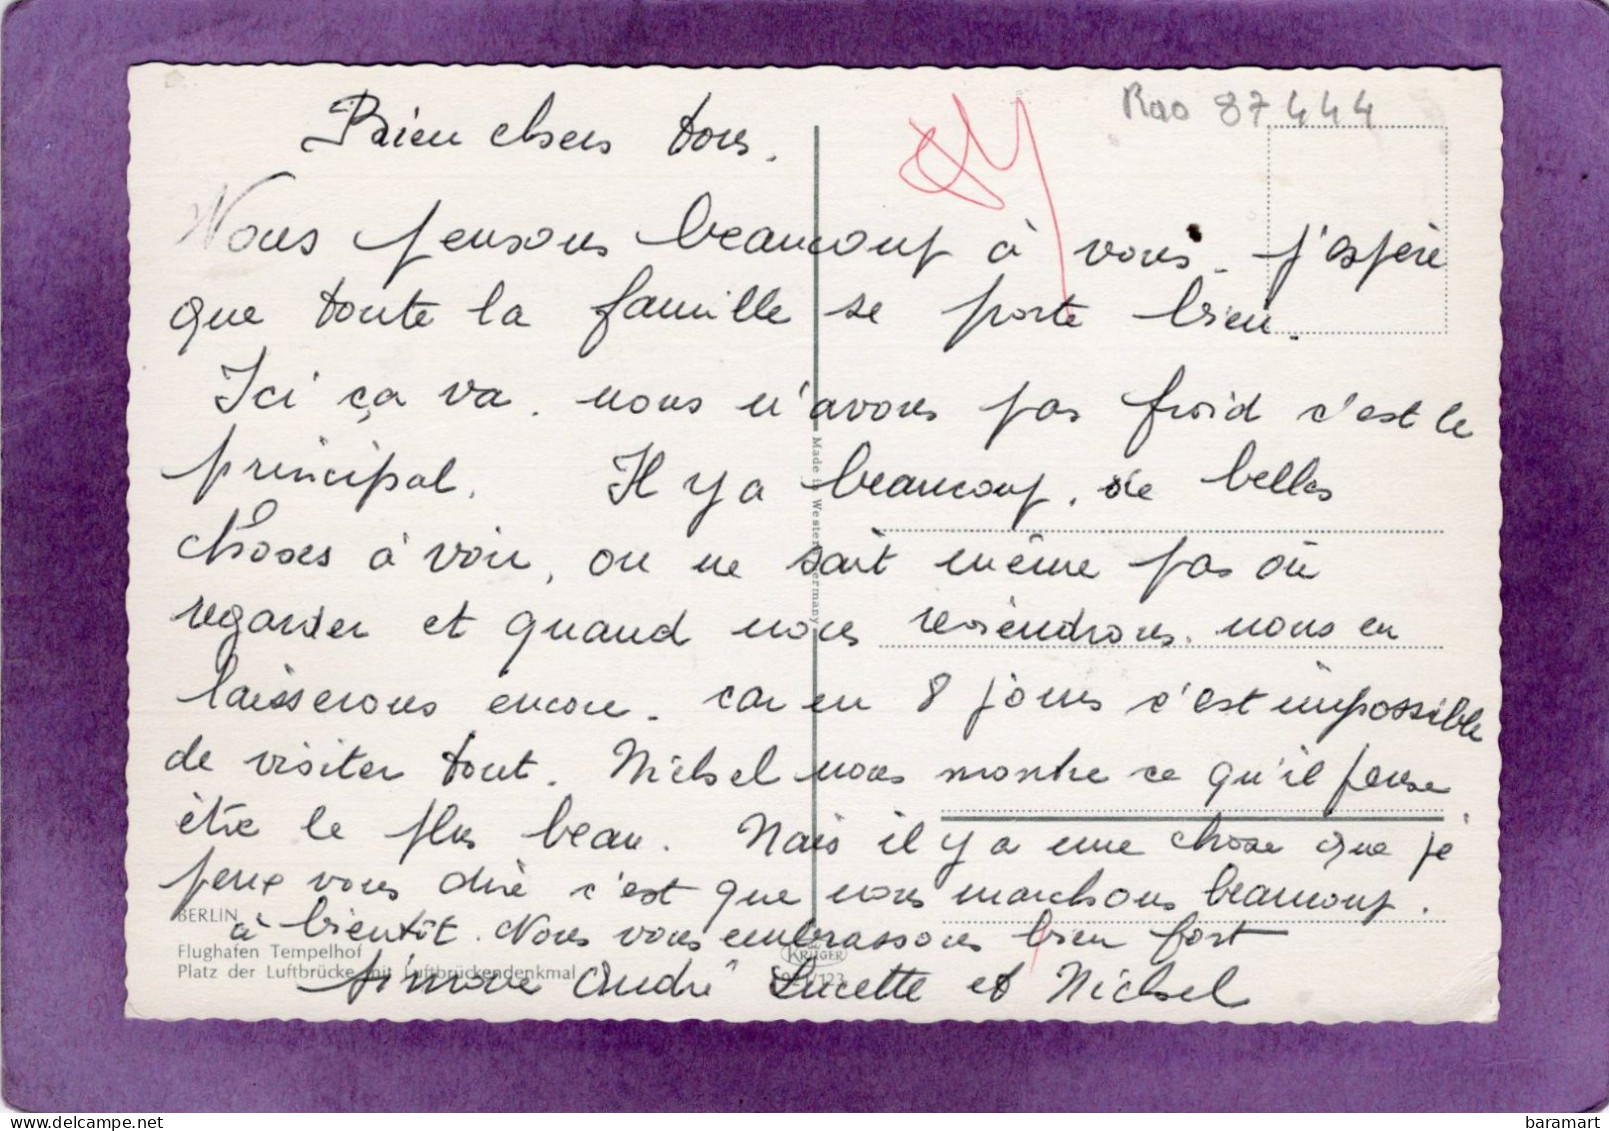 Rao 87444
Bien chers tous.
Nous pensons beaucoup à vous. J'espère
que toute la famille se porte bien.
Ici ça va. nous n'avons pas froid c'est le
principal. Il y a beaucoup de belles
choses à voir, on ne sait même pas où
regarder et quand nous reviendrons. nous en
laisserons encore. car en 8 jours c'est impossible
de visiter tout. Michel nous montre ce qu'il pense
être le plus beau. Mais il y a une chose que je
peux vous dire c'est que nous marchons beaucoup.
à bientôt. Nous vous embrassons bien fort
Simone André Lucette et Michel
Made in Western Germany
BERLIN
Flughafen Tempelhof
Platz der Luftbrücke mit Luftbrückendenkmal
KRÜGER
baramart